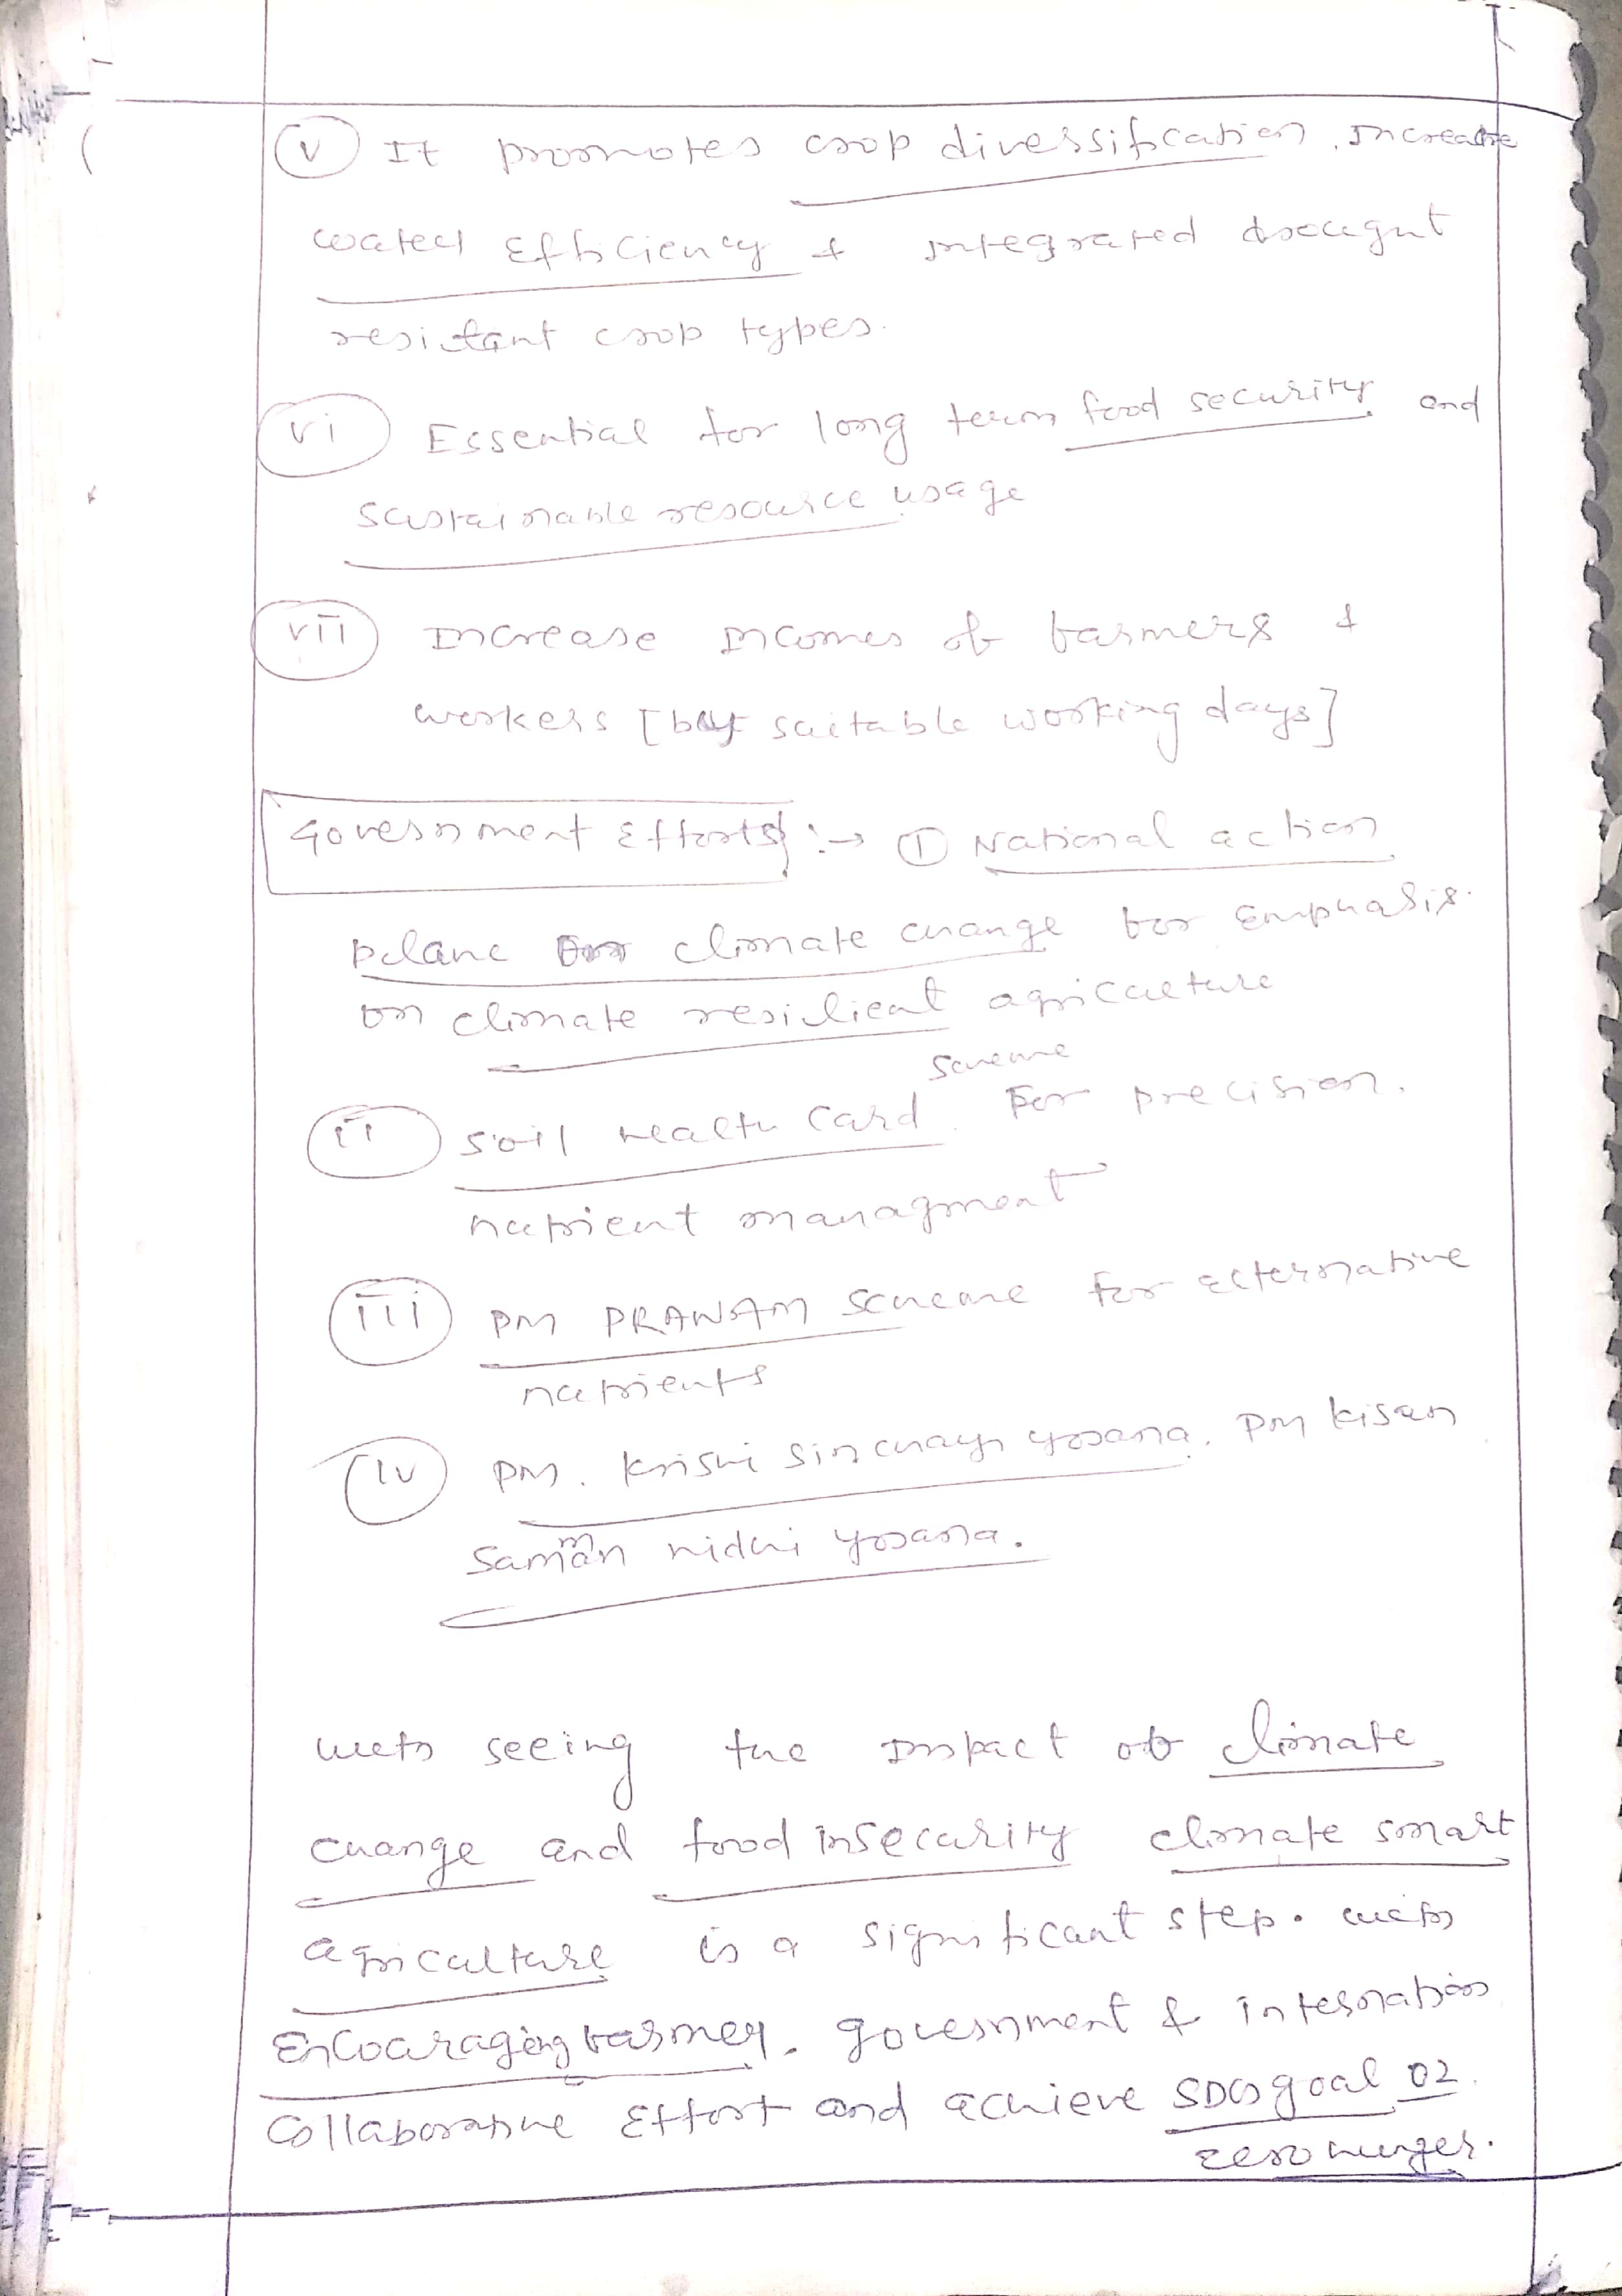 (v) It promotes crop diversification, increase
water efficiency & integrated drougut
resistant crop types.
(vi) Essential for long term food security and
sustainable resource usage
(vii) Increase incomes of farmers &
workers [by suitable working days]
Government Efforts :→ (I) National action
plane on climate change for emphasis
on climate resilient agriculture
scheme
(ii) Soil health card for precision
nutrient managment
(iii) PM PRANAM scheme for alternative
nutrients
(iv) PM. Krishi sinchayi yojana, PM kisan
samman nidhi yojana.
with seeing the impact of climate
change and food insecurity climate smart
agriculture is a significant step. with
Encouraging farmer, government & internation
collaborative Effort and achieve SDG goal 02
zero hunger.